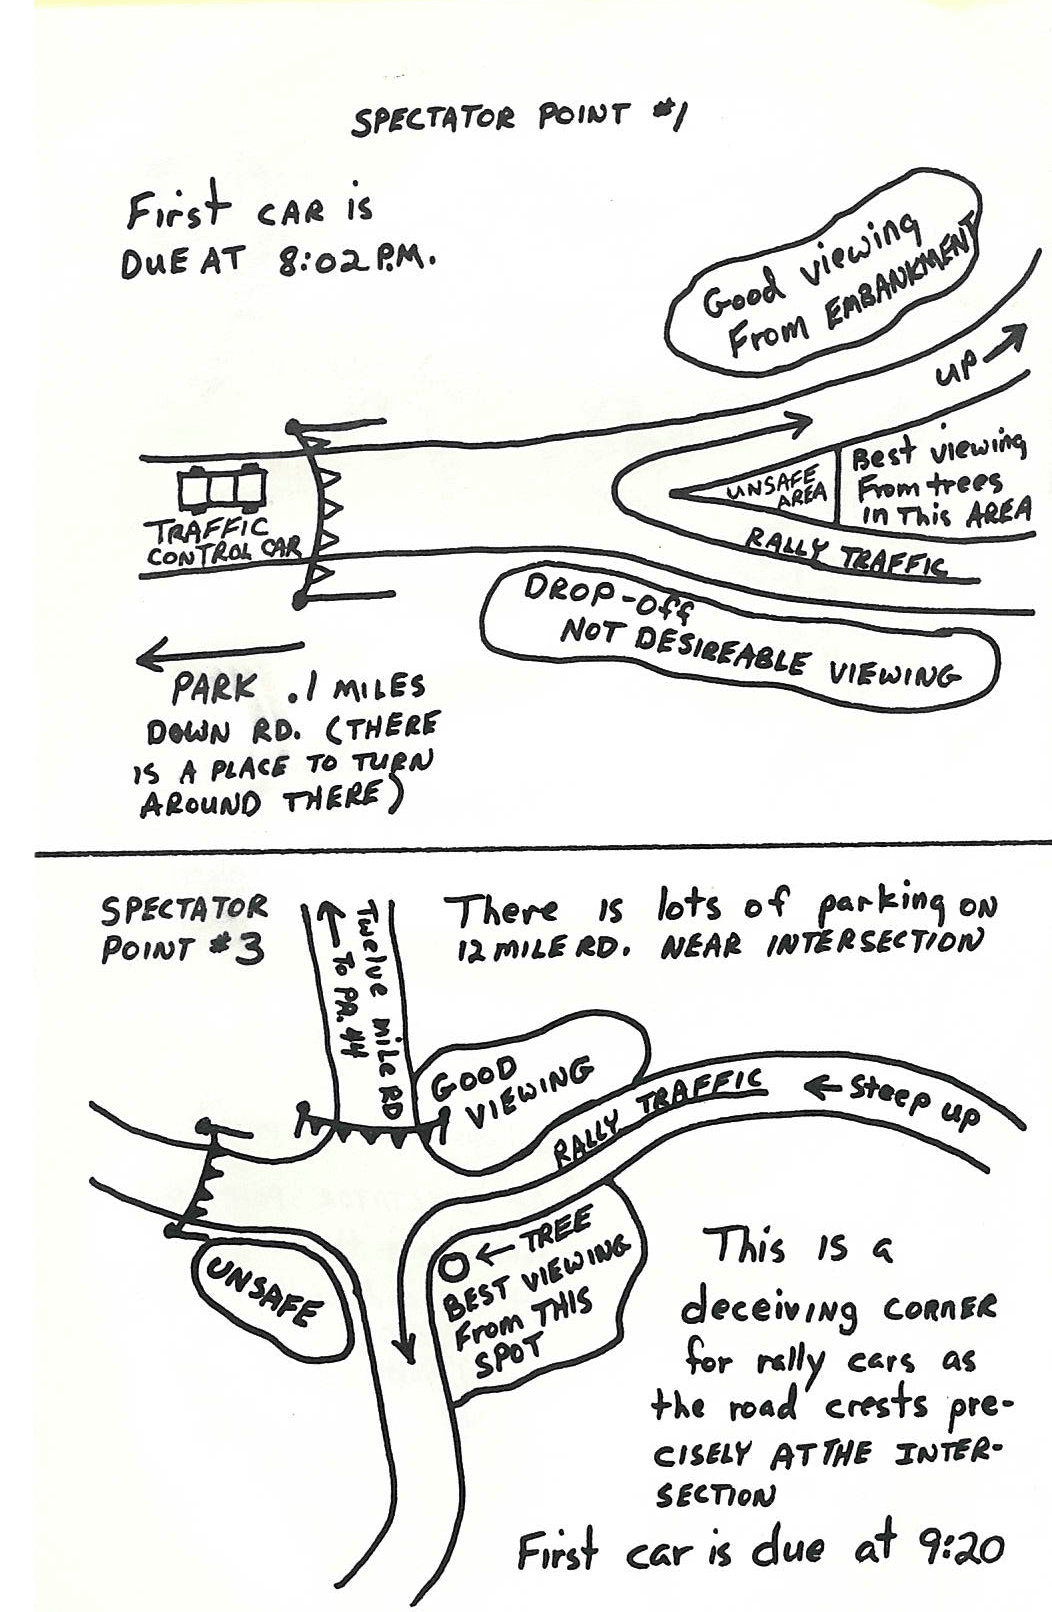 SPECTATOR POINT #1
First CAR is
DUE AT 8:02 P.M.
Good viewing
From EMBANKMENT
UP
Best viewing
From trees
in This AREA
UNSAFE
AREA
RALLY TRAFFIC
TRAFFIC
CONTROL CAR
DROP-off
NOT DESIREABLE VIEWING
PARK .1 MILES
DOWN RD. (THERE
IS A PLACE TO TURN
AROUND THERE)
SPECTATOR
POINT #3
Twelve mile RD
To PA. 44
There is lots of parking ON
12 MILE RD. NEAR INTERSECTION
GOOD
VIEWING
RALLY TRAFFIC
Steep up
UNSAFE
TREE
BEST VIEWING
From THIS
SPOT
This is a
deceiving CORNER
for rally cars as
the road crests pre-
CISELY AT THE INTER-
SECTION
First car is due at 9:20